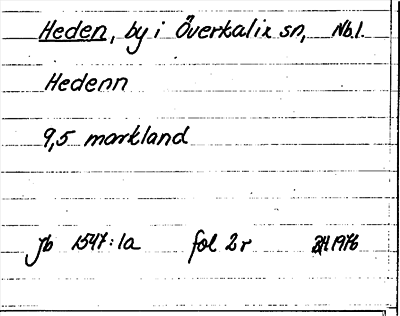 Heden, by i Överkalix sn, Nb.l.
Hedenn
9,5 markland
Jb 1547:1a fol 2r BH 1976